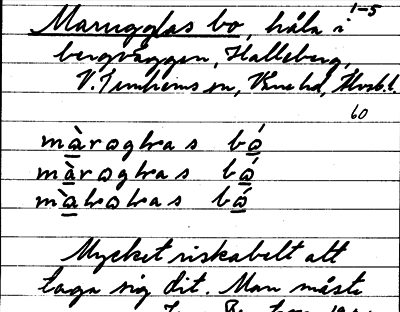 1-5
Marugglas bo, håla i
bergväggen, Halleberg,
V. Tunhems sn, Väne hd, Älvsb. l.
60
màroghas bó
màroghas bó
màhohas bó
Mycket riskabelt att
taga sig dit. Man måste